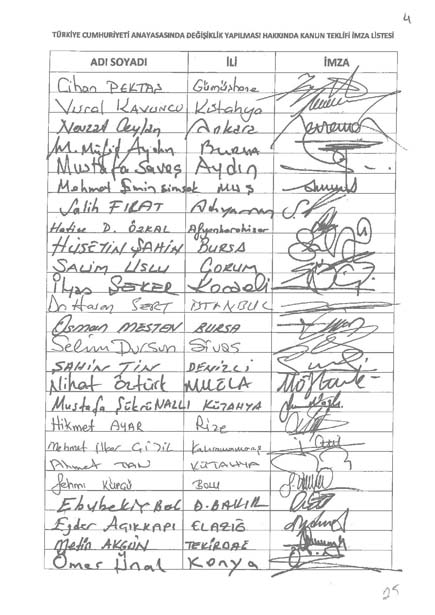 4
TÜRKİYE CUMHURİYETİ ANAYASASINDA DEĞİŞİKLİK YAPILMASI HAKKINDA KANUN TEKLİFİ İMZA LİSTESİ
ADI SOYADI İLİ İMZA
Cihan PEKTAŞ Gümüşhane
Vural KAVUNCU Kütahya
Nevzat Ceylan Ankara
M. Müfit Aydın BURSA
Mustafa Savaş Aydın
Mehmet Emin Şimşek MUŞ
Salih FIRAT Adıyaman
Hatice D. ÖZKAL Afyonkarahisar
HÜSEYİN ŞAHİN BURSA
SALİM USLU ÇORUM
İlyas ŞEKER Kocaeli
Dr Hasan SERT İSTANBUL
Osman MESTEN BURSA
Selim Dursun Sivas
ŞAHİN TİN DENİZLİ
Nihat Öztürk MUĞLA
Mustafa Şükrü NALLI KÜTAHYA
Hikmet AYAR Rize
Mehmet İlker Kahramanmaraş
Ahmet TAN KÜTAHYA
Fehmi Küpçü Bolu
Ebubekir Bal D.BAKIR
Ejder AÇIKKAPI ELAZIĞ
Metin AKGÜN TEKİRDAĞ
Ömer Ünal Konya
25